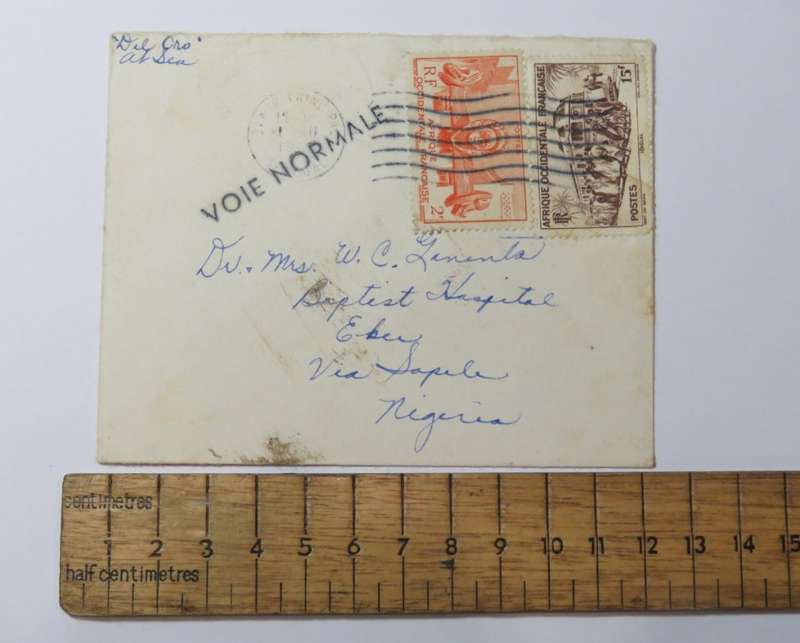 "Del Oro"
At Sea
VOIE NORMALE
R F
AFRIQUE
OCCIDENTALE FRANÇAISE
POSTES
2F
15F
AFRIQUE OCCIDENTALE FRANÇAISE
RF
POSTES
Dr. Mrs. W. C.
Baptist Hospital
Eku
Via Sapele
Nigeria
centimetres
1 2 3 4 5 6 7 8 9 10 11 12 13 14 15
half centimetres